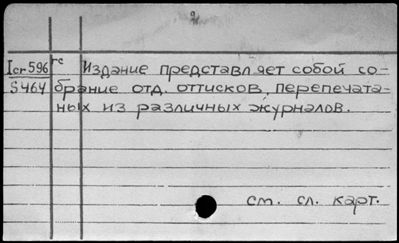 2
Icr596 гс Издание представляет собой со-
S464 брание отд. оттисков, перепечата-
ных из различных журналов.
см. сл. карт.